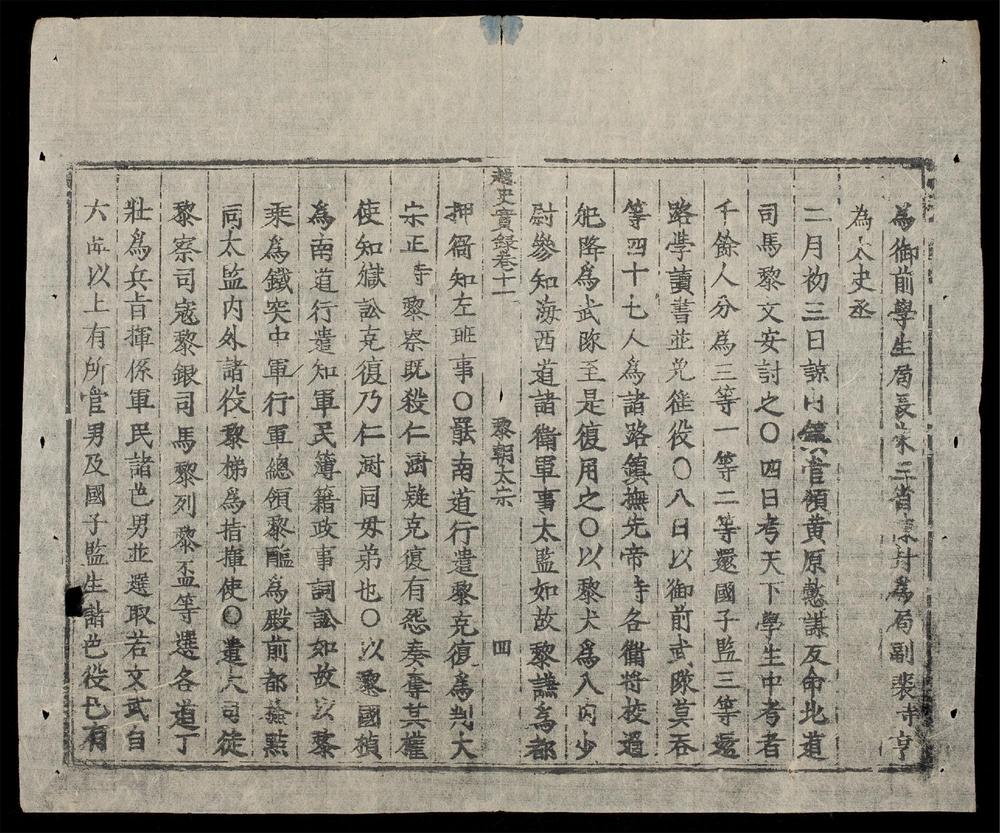 為御前學生局長宋三省為局副裴時亨
為太史丞
二月初三日諒山鎮官領黄原憼謀反命北道
司馬黎文安討之〇四日考天下學生中考者
千餘人分為三等一等二等還國子監三等還
路學讀書並免徭役〇八日以御前武隊莫吞
等四十七人為諸路鎮撫先帝時各衛将校過
犯降為武隊至是復用之〇以黎犬為入内少
尉參知海西道諸衛軍事太監如故黎讌為都
越史實録卷十一 黎朝太宗 四
押衙知左班事〇罷南道行遣黎克復為判大
宗正寺黎察既殺仁澍疑克復有怨奏奪其權
使知獄訟克復乃仁澍同母弟也〇以黎國楨
為南道行遣知軍民簿籍政事詞訟如故以黎
乘為鐵突中軍行軍總領黎醧為殿前都檢點
同太監内外諸役黎梯為指揮使〇遣大司徒
黎察司寇黎銀司馬黎列黎盃等選各道丁
壮為兵旨揮係軍民諸色男並選取若文武自
六品以上有所官男及國子監生諸色役已有